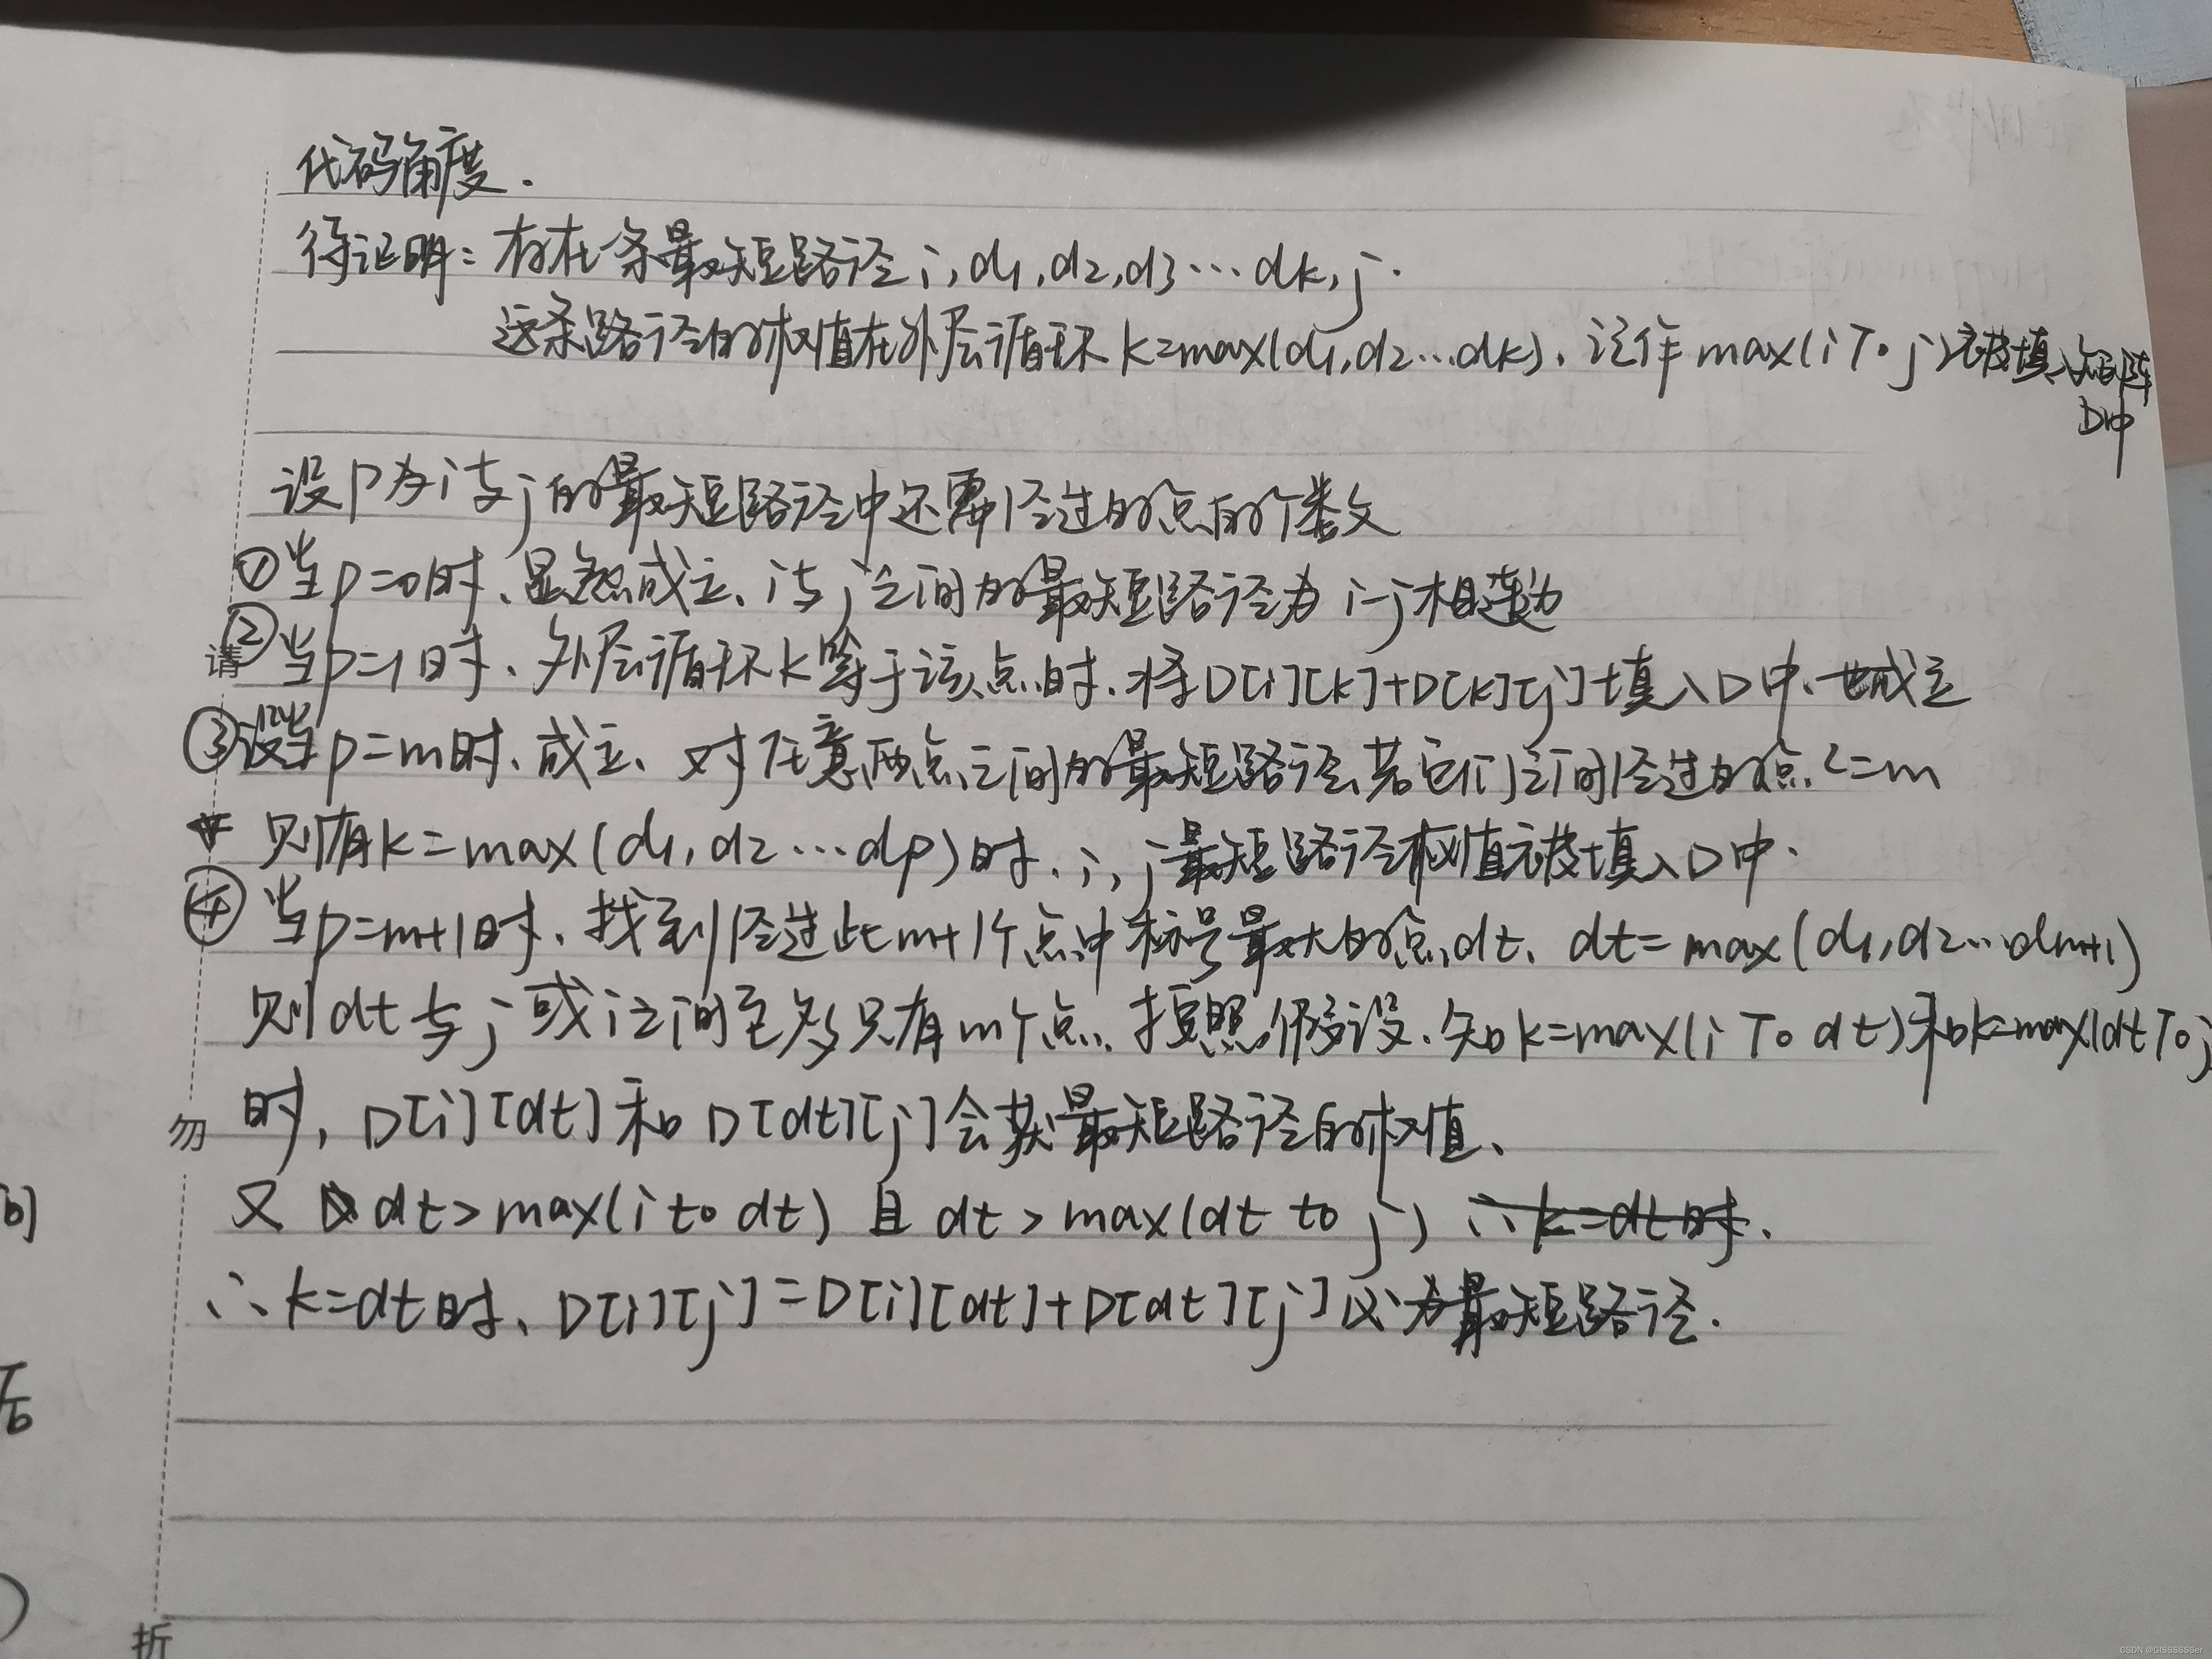 代码角度.
待证明: 存在条最短路径 i, d1, d2, d3 … dk, j.
这条路径的权值在外层循环 k=max(d1, d2…dk), 记作 max(i To j) 被填入矩阵
D中
设P为i与j的最短路径中还需经过的点的个数
①当p=0时、显然成立、i与j之间的最短路径为 i-j相连边
请
②当p=1时、外层循环k等于该点时、将D[i][k]+D[k][j]填入D中、也成立
③设当p=m时、成立、对任意两点之间的最短路径、若它们之间经过的点<=m
则有k=max(d1, d2…dp)时、i, j最短路径权值被填入D中.
④当p=m+1时、找到经过此m+1个点中标号最大的点dt、dt=max(d1, d2…dm+1)
则dt与j或i之间至多只有m个点、按照假设、知k=max(i To dt)和k=max(dt To j
勿
时, D[i][dt]和D[dt][j]会获最短路径的权值、
又 dt>max(i to dt) 且 dt>max(dt to j) ∴k=dt时.
∴k=dt时、D[i][j]=D[i][dt]+D[dt][j]必为最短路径.
折
CSDN @GISSSSSSer